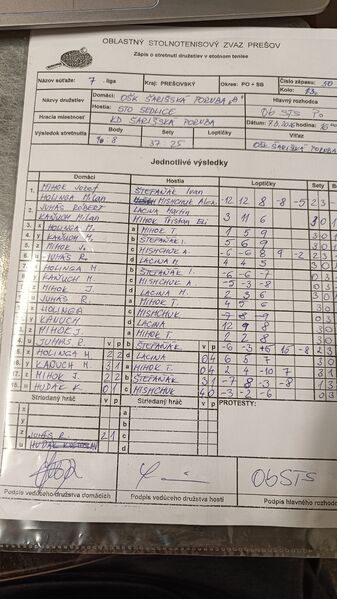 OBLASTNÝ STOLNOTENISOVÝ ZVÄZ PREŠOV
Zápis o stretnutí družstiev v stolnom tenise
Názov súťaže: 7. liga Kraj: PREŠOVSKÝ Okres: PO + SB Číslo zápasu: 50
Kolo: 13.
Názov družstiev Domáci: OŠK ŠARIŠSKÁ PORUBA "B" Hlavný rozhodca
Hostia: STO SEDLICE ObSTS Po
Hracia miestnosť KD ŠARIŠSKÁ PORUBA Dátum: hodina:
Výsledok stretnutia Body Sety Loptičky Víťaz
10 - 8 37 25 OŠK ŠARIŠSKÁ PORUBA
Jednotlivé výsledky
Domáci Hostia Loptičky Sety Body
1. MIHOK Jozef ŠTEFANÁK Ivan
HOLINGA Milan MISHCHUK Alex -12 12 8 -8 -5 2 3
2. JUHÁS Róbert LACINA Martin
KAŇUCH Milan MIHOK Tristan Eli 3 11 6 3 0 1
3. x HOLINGA M. a MIHOK T. 1 5 9 3 0
4. y KAŇUCH M. b ŠTEFANÁK I. 5 6 9 3 0
5. z MIHOK J. c MISHCHUK A. -6 -6 8 9 -2 2 3
6. u JUHÁS R. d LACINA M. 4 4 5 3 0
HOLINGA M. ŠTEFANÁK I. -6 -6 -7 0 3
KAŇUCH M. MISHCHUK A. -5 -3 -8 0 3
MIHOK J. LACINA M. 2 3 6 3 0
JUHÁS R. MIHOK T. 4 6 5 3 0
HOLINGA MISHCHUK -7 -8 -9 0 3
KAŇUCH LACINA 12 9 8 3 0
MIHOK J. MIHOK T. 1 2 8 3 0
JUHÁS R. v p ŠTEFANÁK v p 2 3
HOLINGA M. 2 2 LACINA 0 4 6 5 7 3 0
KAŇUCH M. 3 1 MIHOK T. 0 4 2 4 -10 7 3 1
MIHOK J. 2 2 b ŠTEFANÁK 3 1 -7 8 -3 -8 1 3
HUDÁK K. 0 1 c MISHCHUK 4 0 -3 -2 -6 0 3
Striedaný hráč v p Striedaný hráč v p PROTESTY:
x a
y b
z JUHÁS R. 2 1 c
u d
ObSTS
Podpis vedúceho družstva domácich Podpis vedúceho družstva hostí Podpis hlavného rozhodcu